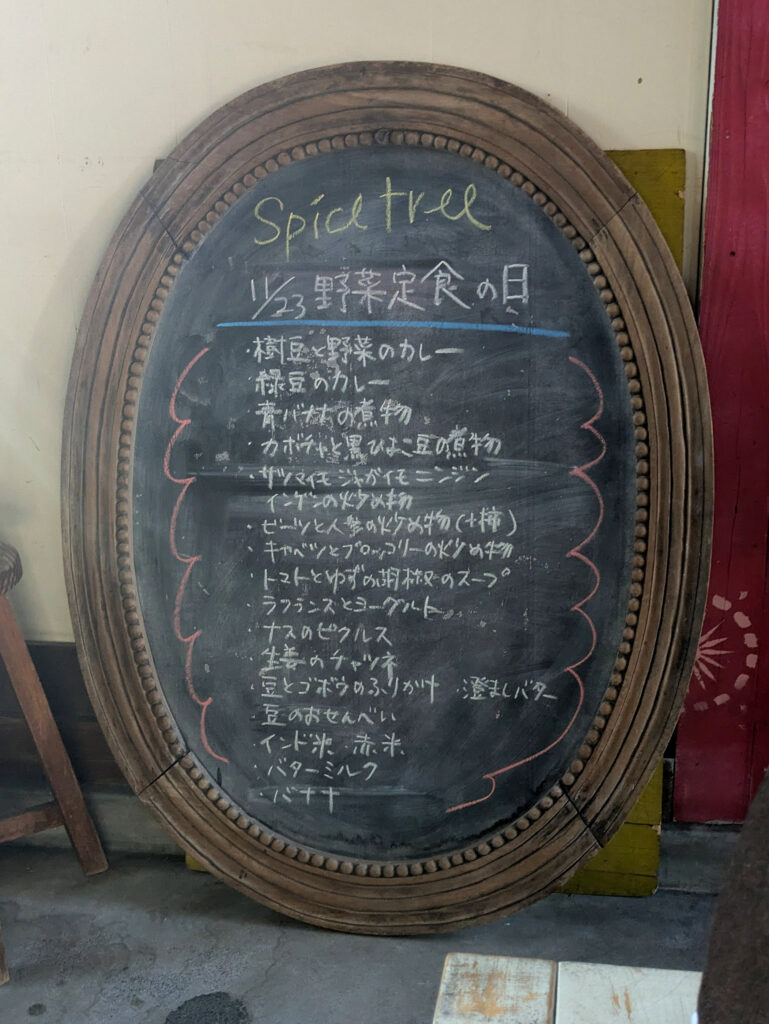 Spice tree
11/23 野菜定食の日
・樹豆と野菜のカレー
・緑豆のカレー
・青バナナの煮物
・カボチャと黒ひよこ豆の煮物
・サツマイモ ジャガイモ ニンジン
インゲンの炒め物
・ビーツと人参の炒め物(+柿)
・キャベツとブロッコリーの炒め物
・トマトとゆずの胡椒のスープ
・ラフランスとヨーグルト
・ナスのピクルス
・生姜のチャツネ
・豆とゴボウのふりかけ ・澄ましバター
・豆のおせんべい
・インド米 赤米
・バターミルク
・バナナ